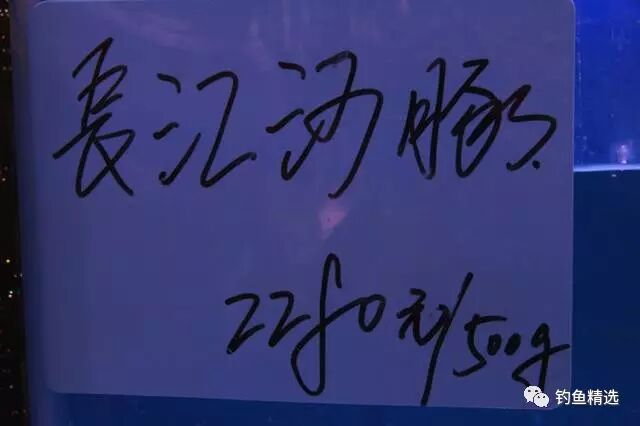 長江河豚
2280元/500g
钓鱼精选